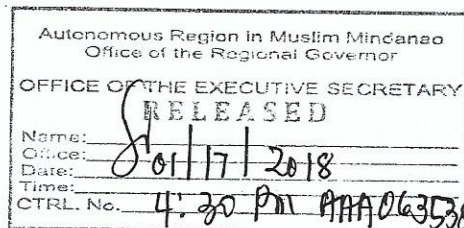 Autonomous Region in Muslim Mindanao
Office of the Regional Governor
OFFICE OF THE EXECUTIVE SECRETARY
RELEASED
Name:
Office:
Date: 01/17/2018
Time: 4:30 PM
CTRL. No. AAA063538